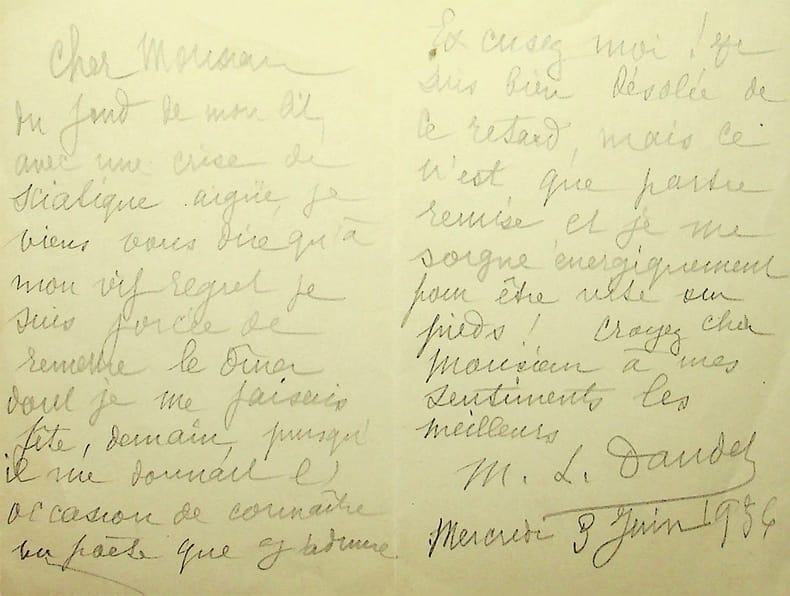 Cher Monsieur
du fond de mon lit,
avec une crise de
sciatique aigüe, je
viens vous dire qu'à
mon vif regret je
suis forcée de
remettre le dîner
dont je me faisais
fête, demain, puisqu'
il me donnait l'
occasion de connaître
un poète que j'admire
Excusez moi ! je
suis bien désolée de
ce retard, mais ce
n'est que partie
remise et je me
soigne énergiquement
pour être vite sur
pieds ! Croyez cher
Monsieur à mes
sentiments les
meilleurs
M. L. Daudet
Mercredi 3 Juin 1936